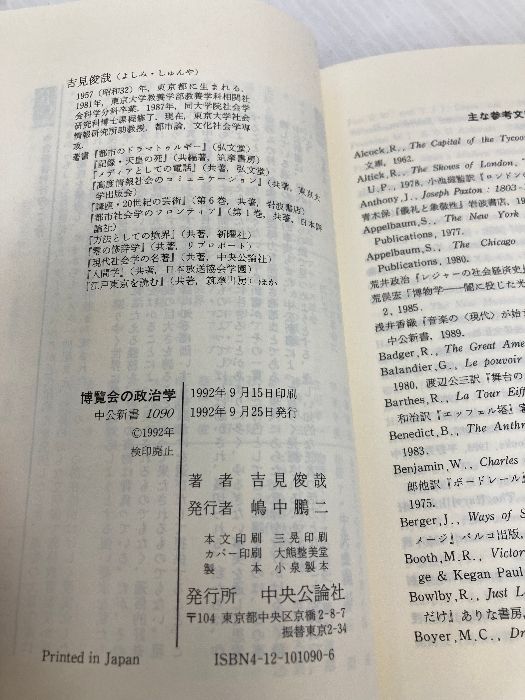 吉見俊哉（よしみ・しゅんや）
1957（昭和32）年，東京都に生まれる．
1981年，東京大学教養学部教養学科相関社
会科学分科卒業．1987年，同大学院社会学
研究科博士課程修了．現在，東京大学社会
情報研究所助教授．都市論，文化社会学専
攻．
著書『都市のドラマトゥルギー』（弘文堂）
『記録・天皇の死』（共編著，筑摩書房）
『メディアとしての電話』（共著，弘文堂）
『高度情報社会のコミュニケーション』（共著，東京大
学出版会）
『講座・20世紀の芸術』（第6巻，共著，岩波書店）
『都市社会学のフロンティア』（第1巻，共著，日本評
論社）
『方法としての境界』（共著，新曜社）
『零の修辞学』（共著，リブロポート）
『現代社会学の名著』（共著，中央公論社）
『人間学』（共著，日本放送協会学園）
『江戸東京を読む』（共著，筑摩書房）ほか
博覧会の政治学
中公新書 1090
©1992年
検印廃止
1992年9月15日印刷
1992年9月25日発行
著 者 吉見俊哉
発行者 嶋中鵬二
本文印刷 三晃印刷
カバー印刷 大熊整美堂
製 本 小泉製本
発行所 中央公論社
〒104 東京都中央区京橋2-8-7
振替東京2-34
Printed in Japan
ISBN4-12-101090-6
主な参考文
Alcock,R., The Capital of the Tycoo
文庫，1962.
Altick,R., The Shows of London,
U.P., 1978. 小池滋監訳『ロンドンの
Anthony,J., Joseph Paxton : 1803-
青木保『儀礼の象徴性』岩波書店，19
Appelbaum,S., The New York
Publications, 1977.
Appelbaum,S., The Chicago
Publications, 1980.
荒井政治『レジャーの社会経済史
荒俣宏『博物学──闇に投じた光
2, 1985.
浅井香織『音楽の〈現代〉が始
中公新書，1989.
Badger,R., The Great Ame
Balandier,G., Le pouvoir
1980, 渡辺公三訳『舞台の
Barthes,R., La Tour Eiff
和治訳『エッフェル塔』審
Benedict,B., The Anthr
1983.
Benjamin,W., Charles
郎他訳『ボードレール
1975.
Berger,J., Ways of S
メージ』パルコ出版，
Booth,M.R., Victor
ge & Kegan Paul
Bowlby,R., Just L
だけ』ありな書房，
Boyer,M.C., Dr